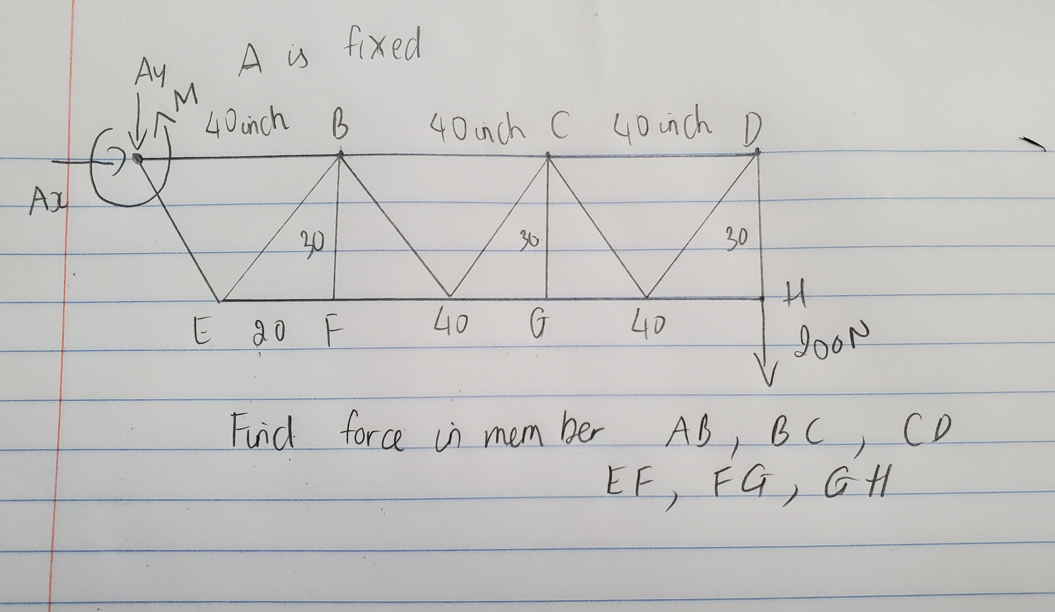 A is fixed
Ay
M
40inch B 40inch C 40inch D
Ax
30 30 30
E 20 F 40 G 40 H
200N
Find force in member AB, BC, CD
EF, FG, GH